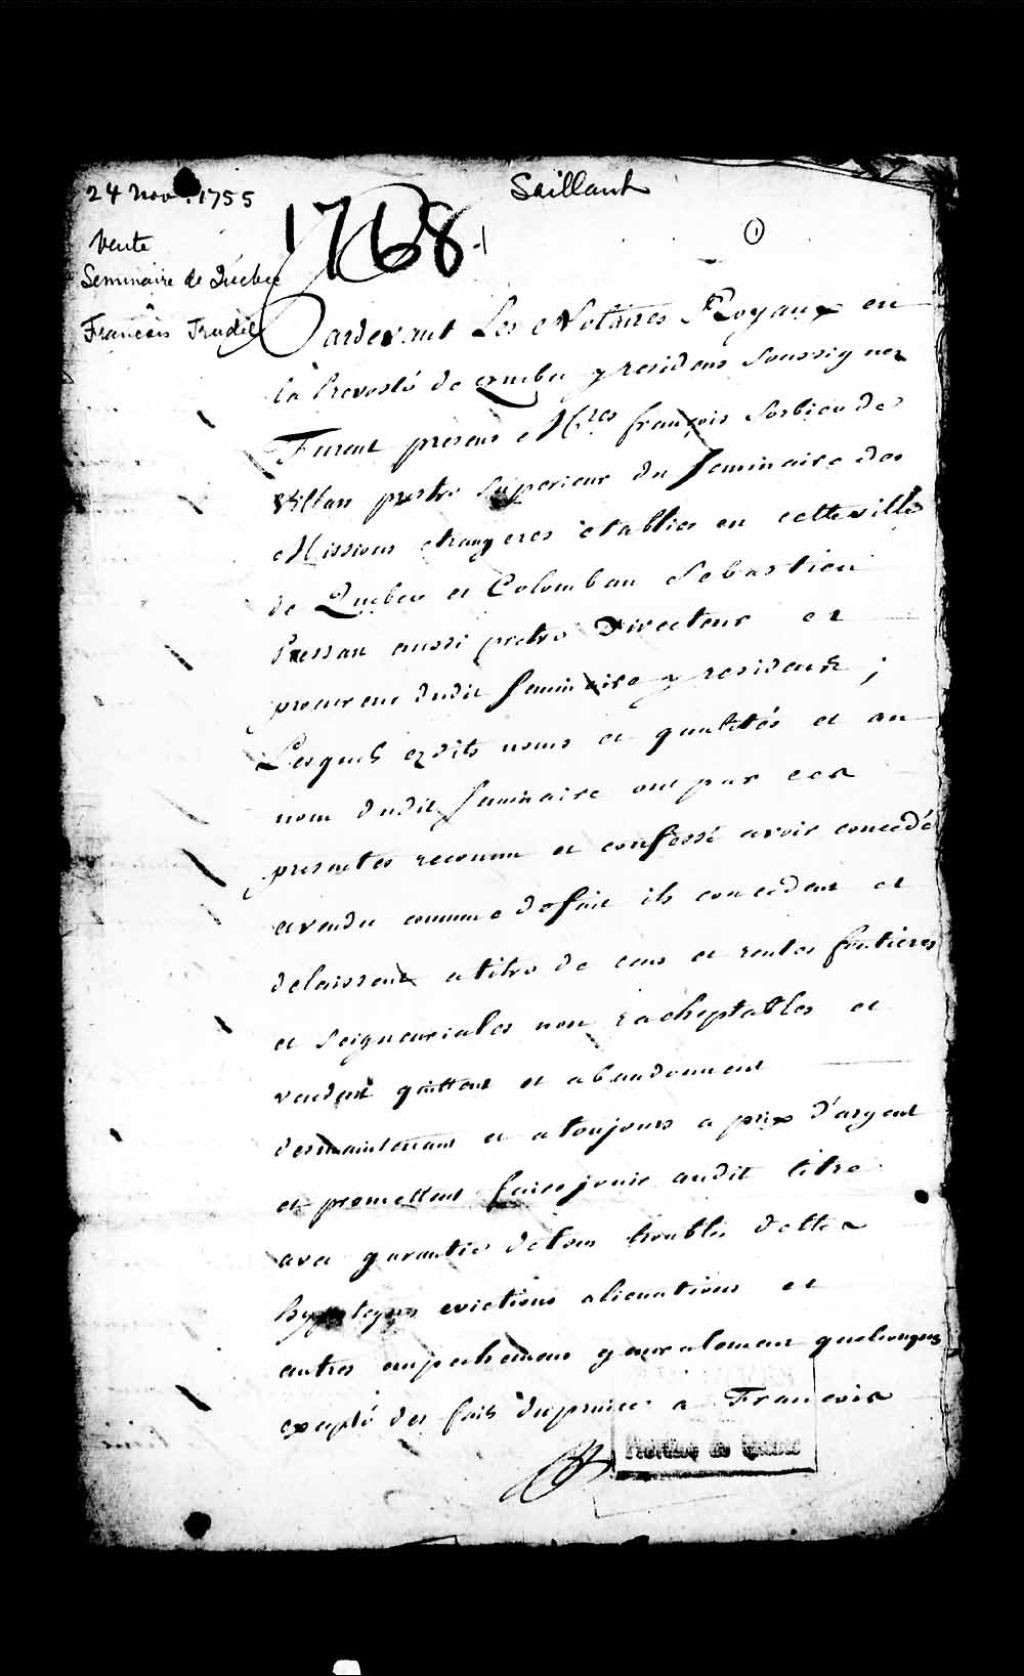 24 Nov. 1755
Saillant
1768-1
1
Vente
Seminaire de Québec
à
François Trudel
Pardevant Les Notaires Royaux en
la Prevosté de Quebec y residens soussignez
Furent presens Mrs françois Sorbier de
Villars prestre Superieur du Seminaire des
Missions etrangeres etablies en cette ville
de Quebec et Colomban Sebastien
Pressart aussi pretre Directeur et
procureur dudit Seminaire y residents ;
Lesquels ezdits noms et qualités et au
nom dudit Seminaire ont par ces
presentes reconnu et confessé avoir concedé
et vendu comme defait ils concedent et
delaissent a titre de cens et rentes fontieres
et Seigneuriales non racheptables et
vendent quittent et abandonnent
desmaintenant et a toujours a prix d'argent
et promettent faire jouir audit titre
avec garantie detous troubles dettes
hypoteques evictions alienations et
autres empechemens generalement quelconques
excepté des faits du prince a François
Province de Quebec